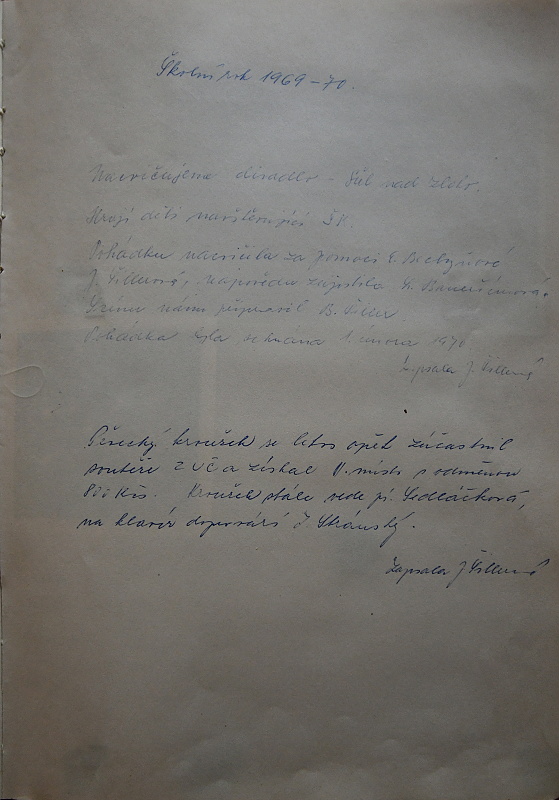 Školní rok 1969-70.
Nacvičujeme divadlo - Sůl nad zlato.
Hrají děti navštěvující ŠK.
Pohádku nacvičila za pomoci
J. Šillerová, nápovědu zajistila
Scénu nám připravil B. Šiller.
Pohádka byla sehrána 1. února 1970
Zapsala J. Šillerová
Pěvecký kroužek se letos opět zúčastnil
soutěže ZUČ a získal II. místo s odměnou
800 Kčs. Kroužek stále vede pí. Sedláčková,
na klavír doprovází Stránský.
Zapsala J. Šillerová